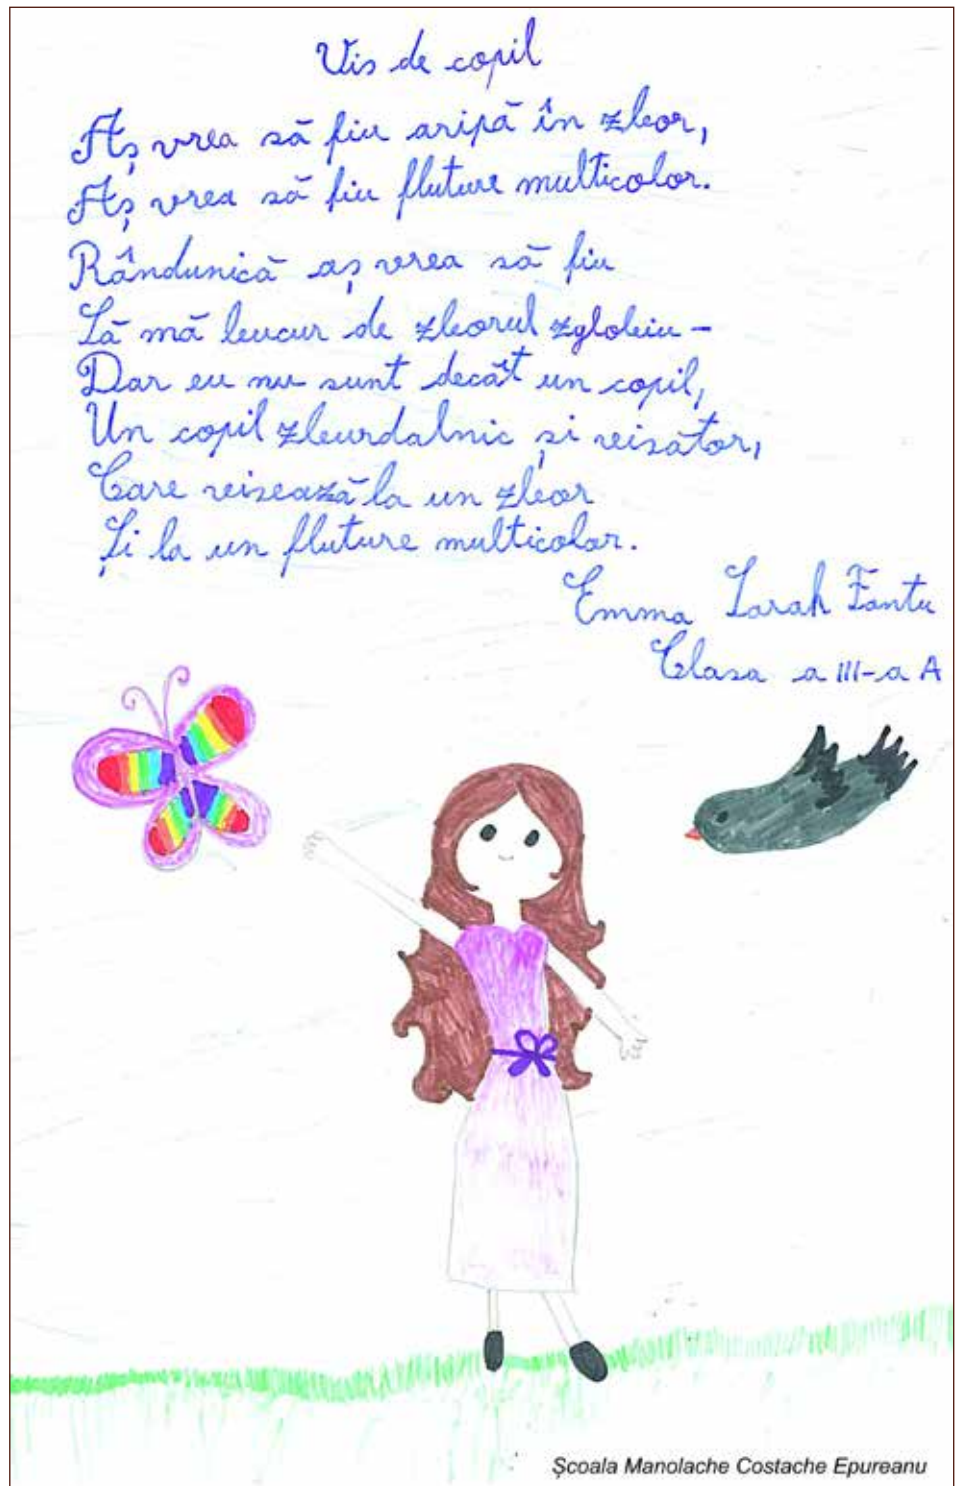 Vis de copil
Aș vrea să fiu aripă în zbor,
Aș vrea să fiu fluture multicolor.
Rândunică aș vrea să fiu
Să mă bucur de zborul zglobiu –
Dar eu nu sunt decât un copil,
Un copil zburdalnic și visător,
Care visează la un zbor
Și la un fluture multicolor.
Emma Sarah Fantu
Clasa a III-a A
Școala Manolache Costache Epureanu